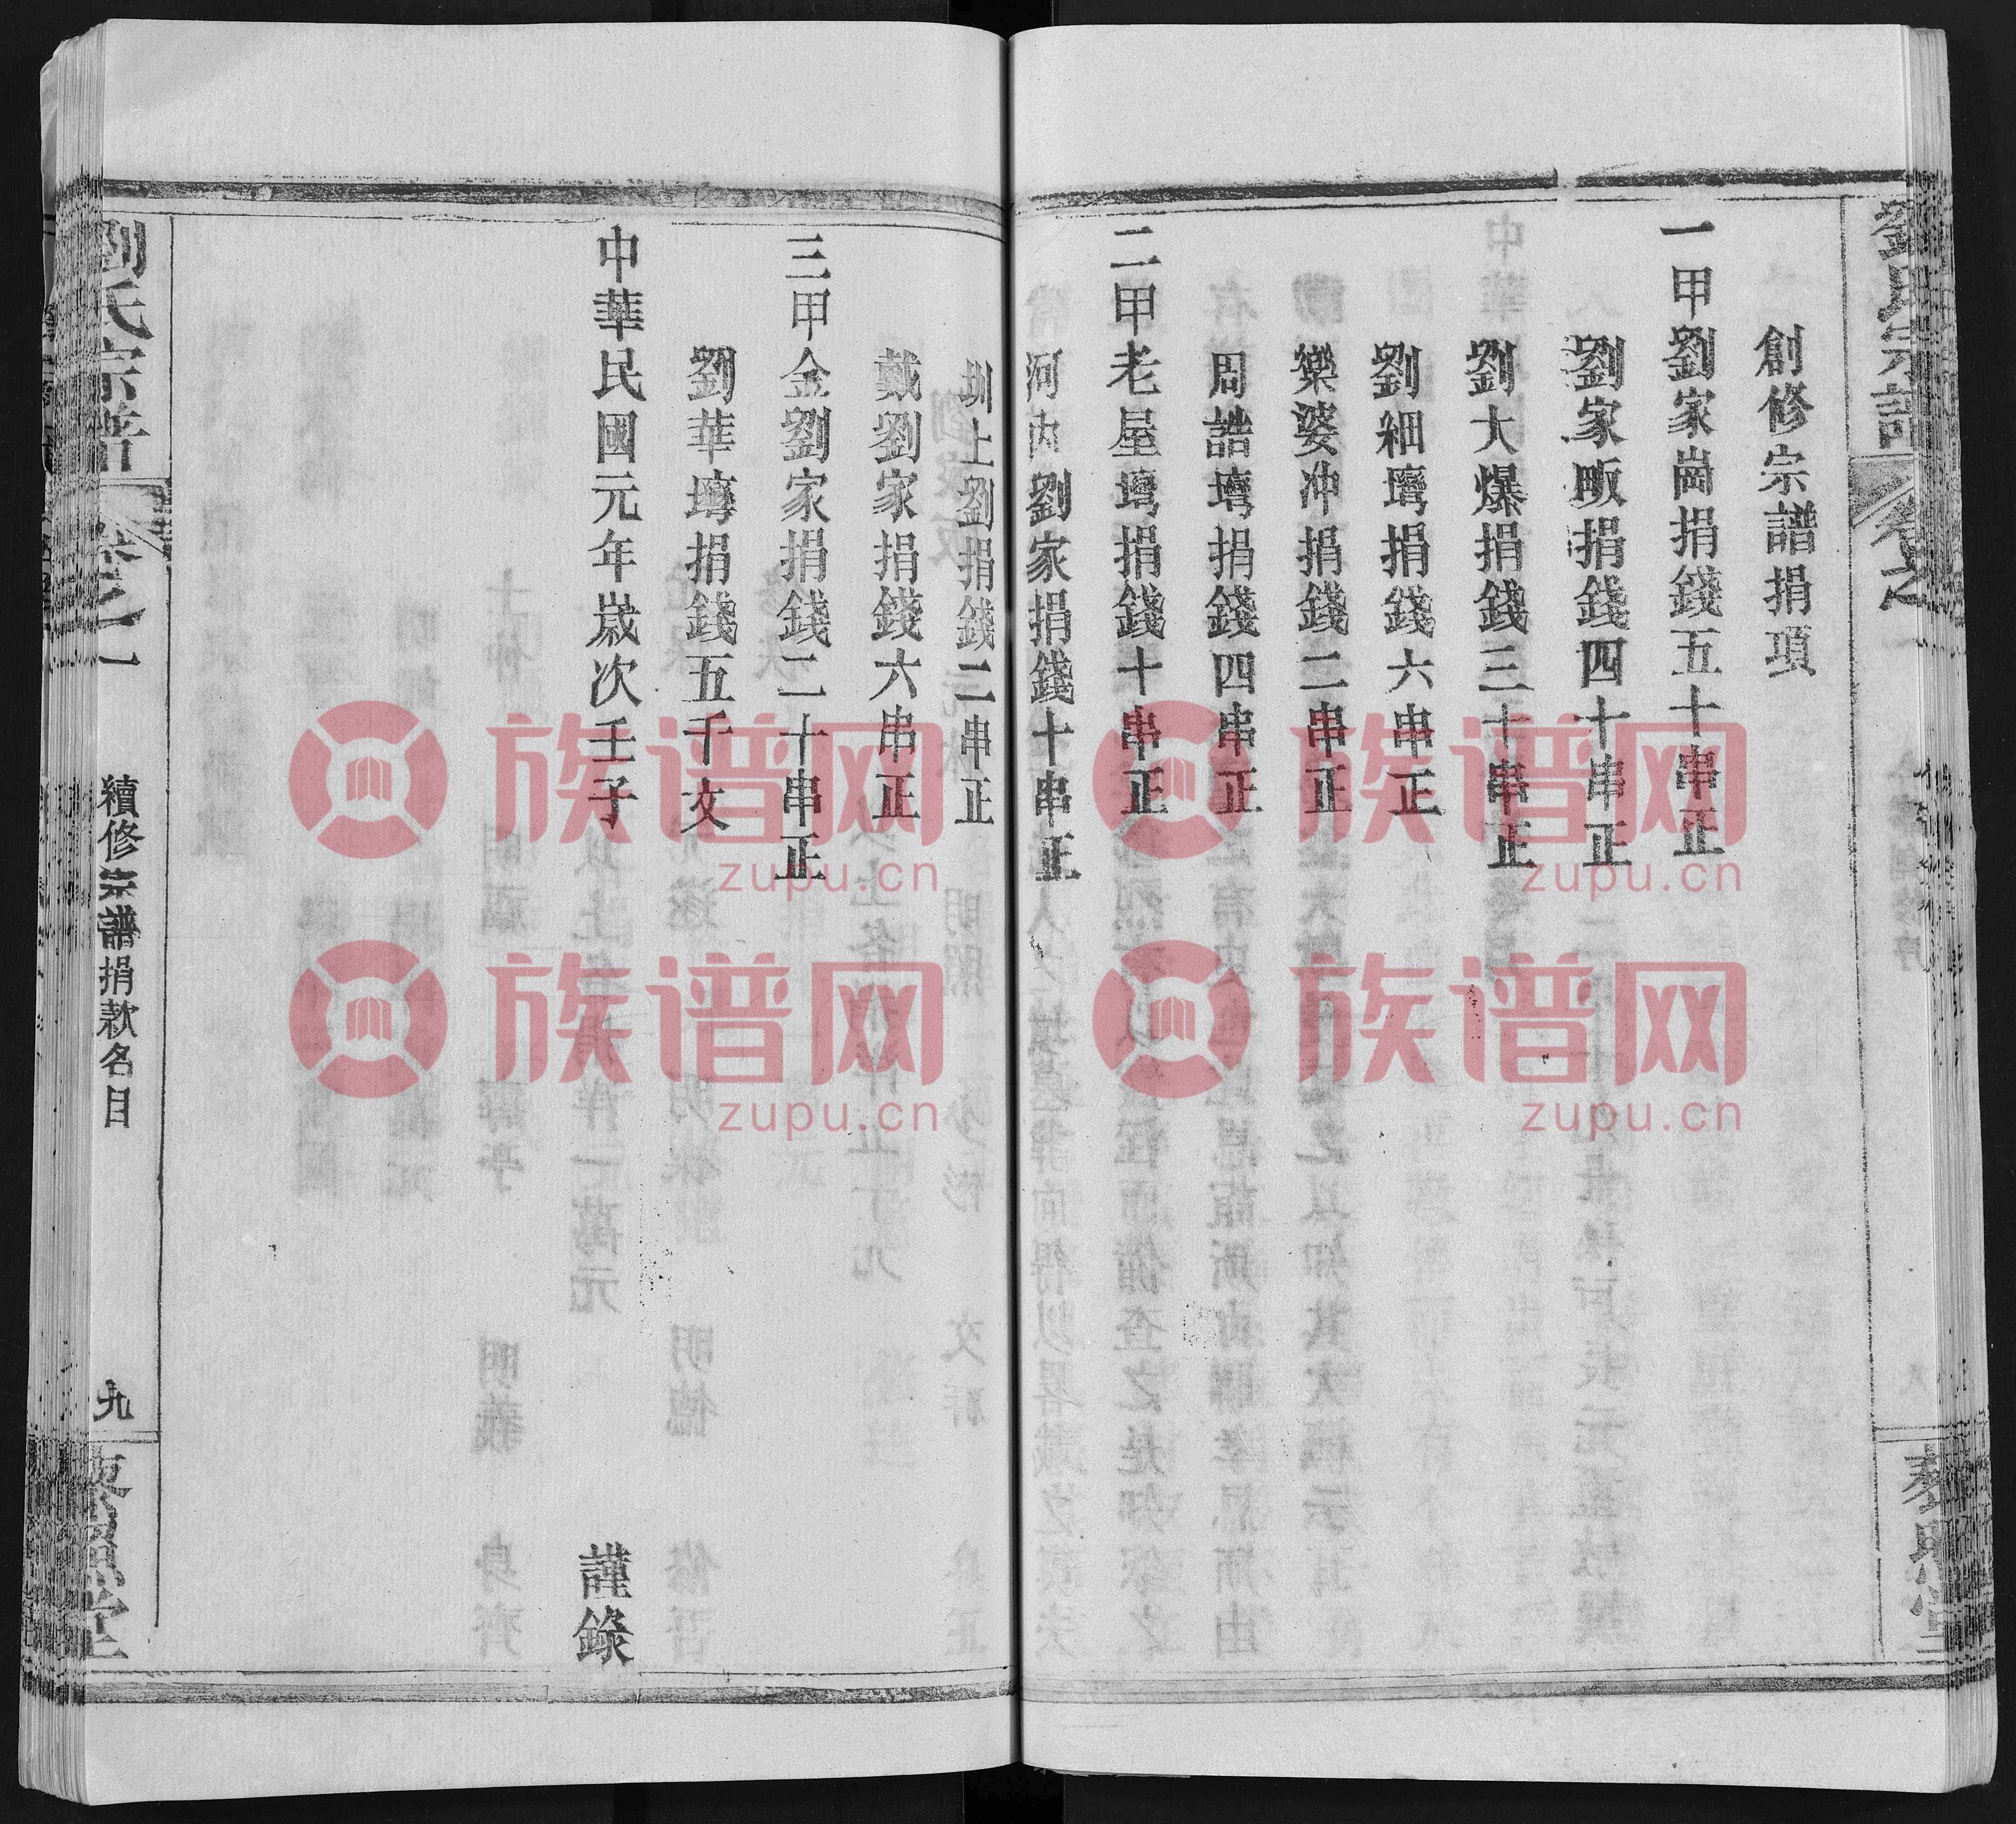 創修宗譜捐項
一甲劉家崗捐錢五十串正
劉家畈捐錢四十串正
劉大爆捐錢三十串正
劉細壪捐錢六串正
樂婆冲捐錢二串正
周誥壪捐錢四串正
二甲老屋壪捐錢十串正
河内劉家捐錢十串正
圳上劉捐錢二串正
戴劉家捐錢六串正
三甲金劉家捐錢二十串正
劉華壪捐錢五千文
中華民國元年歲次壬子 謹錄
劉氏宗譜 卷之一 續修宗譜捐款名目 九
族谱网
zupu.cn
族谱网
zupu.cn
族谱网
zupu.cn
族谱网
zupu.cn